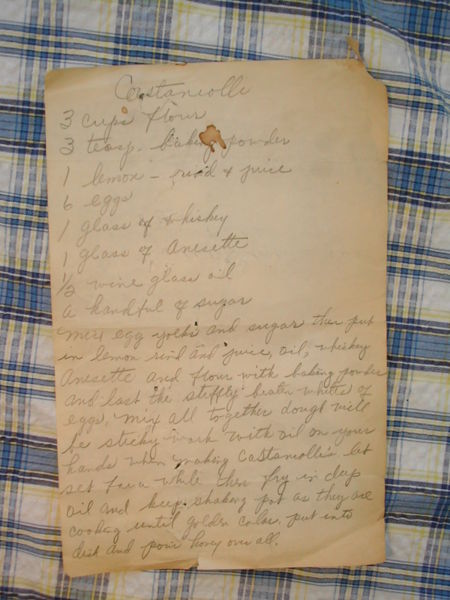 Castaniolle
3 cups flour
3 teasp. baking powder
1 lemon - rind & juice
6 eggs
1 glass of whiskey
1 glass of Anesette
1/2 wine glass oil
a handful of sugar
mix egg yolks and sugar then put
in lemon rind and juice, oil, whiskey
Anesette and flour with baking powder
and last the stiffly beaten whites of
eggs, mix all together dough will
be sticky work with oil on your
hands when making Castaniolle's let
set for a while then fry in deep
oil and keep shaking pot as they are
cooking until golden color, put into
dish and pour honey over all.